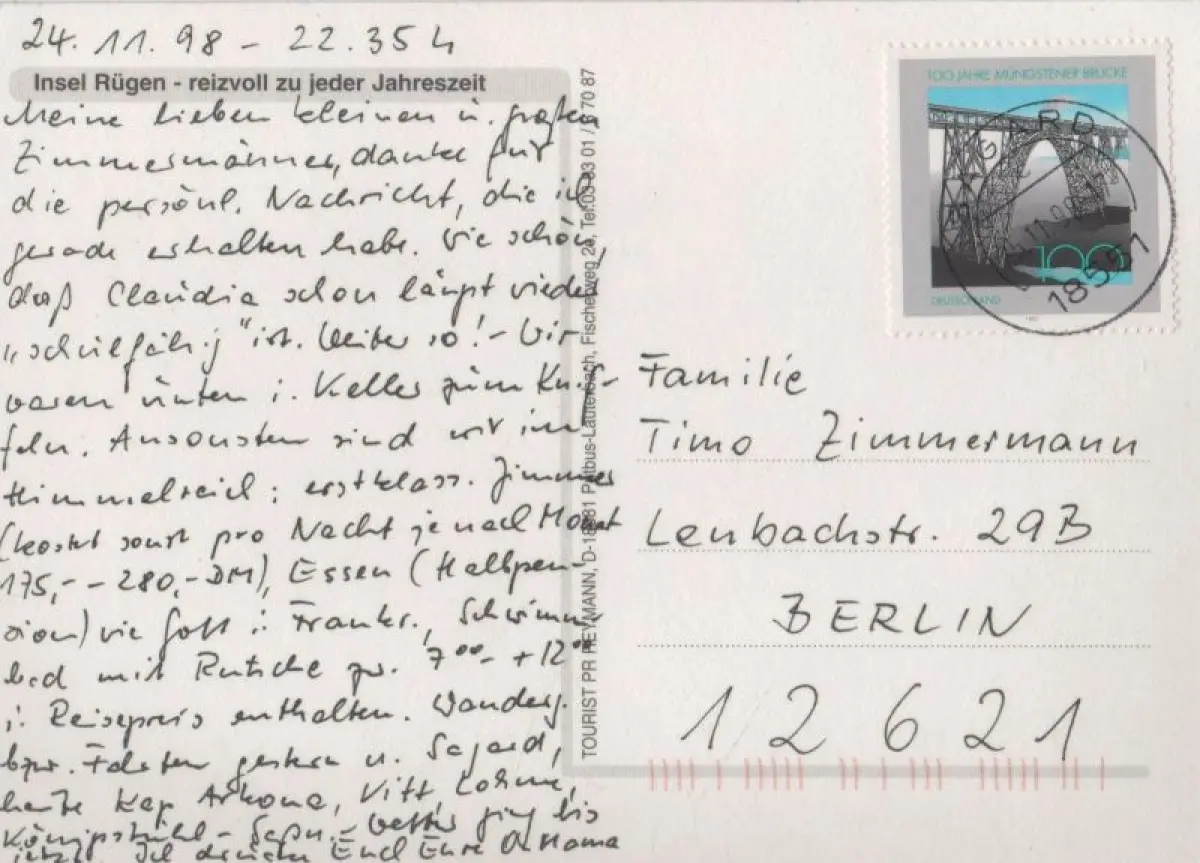 24.11.98 - 22.35 h
Insel Rügen - reizvoll zu jeder Jahreszeit
Meine lieben kleinen u. großen
Zimmermänner, danke für
die persönl. Nachricht, die ich
gerade erhalten habe. Wie schön,
daß Claudia schon längst wieder
„schulfähig" ist. Weiter so! - Wir
waren unten i. Keller zum Knif-
feln. Ansonsten sind wir im
Himmelreich: erstklass. Zimmer
(kostet sonst pro Nacht je nach Monat
175,- - 280,- DM), Essen (Halbpen-
sion) wie Gott i. Frankr., Schwimm-
bad mit Rutsche zw. 7⁰⁰ +12⁰⁰
i. Reisepreis enthalten. Wanderg.
bzw. Fahrten gestern n. Sagard,
heute Kap Arkona, Vitt, Lohme,
Königsstuhl - Saßn. - Wetter ging bis
jetzt. Ich drücke Euch Eure O Mama
TOURIST PR HEYMANN, D-18581 Putbus-Lauterbach, Fischerweg 2
100 JAHRE MÜNGSTENER BRÜCKE
100
DEUTSCHLAND
18551
Familie
Timo Zimmermann
Lenbachstr. 29B
BERLIN
12621